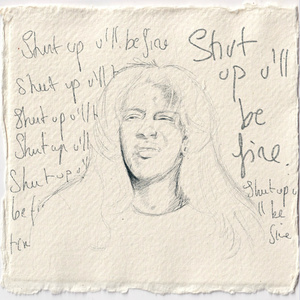 Shut up u'll be fine
Shut up u'll b
Shut up u'll b
Shut up u'll
Shut up u'
be f
Shut
up u'll
be
fine.
Shut up u
'll be
fine